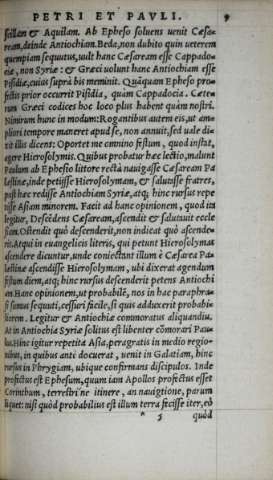 PETRI ET PAVLI. 9
scillan & Aquilam. Ab Epheso soluens uenit Cæsa-
ream, deinde Antiochiam. Beda, non dubito quin ueterem
quempiam sequutus, uult hanc Cæsaream esse Cappado-
ciæ, non Syriæ: & Græci uolunt hanc Antiochiam esse
Pisidiæ, cuius supra bis meminit. Quāquam Epheso pro-
fectis prior occurrit Pisidia, quàm Cappadocia. Cæte-
rum Græci codices hoc loco plus habent quàm nostri.
Nimirum hunc in modum: Rogantibus autem eis, ut am-
pliori tempore maneret apud se, non annuit, sed uale di-
xit illis dicens: Oportet me omnino festum, quod instat,
agere Hierosolymis. Quibus probatur hæc lectio, malunt
Paulum ab Epheso littore rectà nauigasse Cæsaream Pa
læstinæ, inde petijsse Hierosolymam, & salutasse fratres,
post hæc redisse Antiochiam Syriæ, atq; hinc rursus repe
tisse Asiam minorem. Facit ad hanc opinionem, quod ita
legitur, Descēdens Cæsaream, ascendit & salutauit eccle
siam. Ostendit quò descenderit, non indicat quò ascende-
rit. Atqui in euangelicis literis, qui petunt Hierosolymas
ascendere dicuntur, unde coniectant illum è Cæsarea Pa
læstinæ ascendisse Hierosolymam, ubi dixerat agendum
festum diem, atq; hinc rursus descenderit petens Antiochi
am. Hanc opinionem, ut probabilē, nos in hac paraphra-
si sumus sequuti, cessuri facile, si quis adduxerit probabi-
liorem. Legitur & Antiochiæ commoratus aliquandiu.
At in Antiochia Syriæ solitus est libenter cōmorari Pau-
lus. Hinc igitur repetita Asia, peragratis in medio regio-
nibus, in quibus antè docuerat, uenit in Galatiam, hinc
rursus in Phrygiam, ubique confirmans discipulos. Inde
profectus est Ephesum, quum iam Apollos profectus esset
Corinthum, terrestri'ne itinere, an nauigatione, parum
liquet: nisi quòd probabilius est illum terra fecisse iter, eò
* 5 quòd